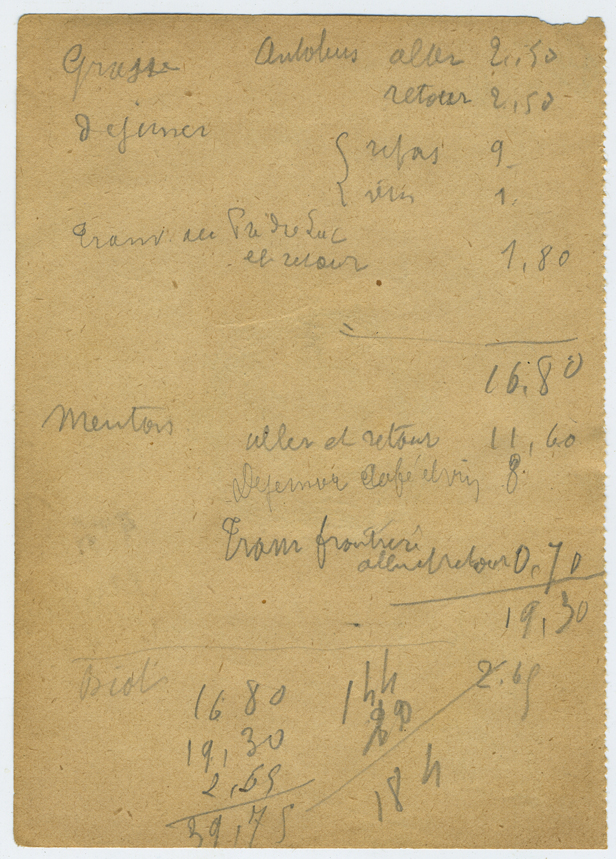 Grasse Autobus aller 2,50
retour 2,50
Dejeuner
{ repas 9
{ vin 1
Tram au Pré du Lac
et retour 1,80
16,80
Menton
aller et retour 11,60
Dejeuner Café et vin 8
Tram frontière
aller et retour 0,70
19,30
Biot 2.65
16 80 144
19,30
2,65
39,75 184